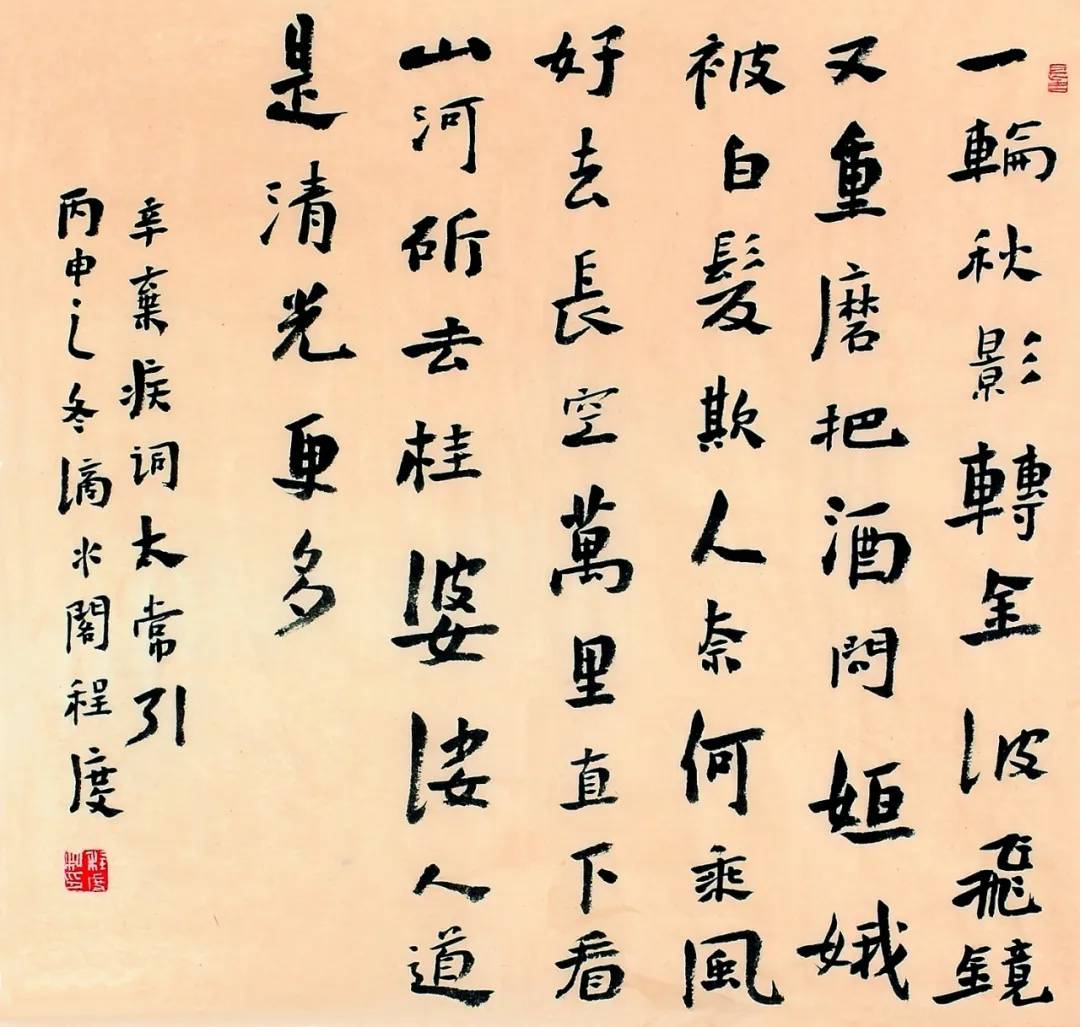 一輪秋影轉金波飛鏡
又重磨把酒問姮娥
被白髮欺人奈何乘風
好去長空萬里直下看
山河斫去桂婆娑人道
是清光更多
辛棄疾詞太常引
丙申之冬滴水閣程度